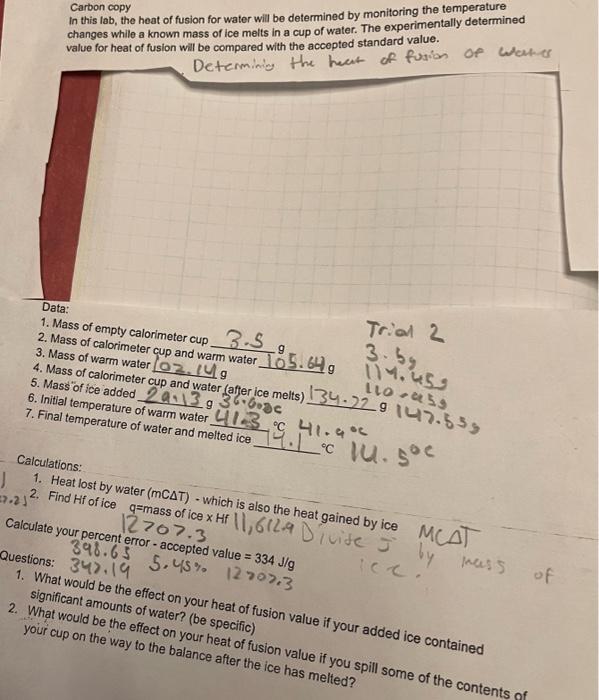 Carbon copy
In this lab, the heat of fusion for water will be determined by monitoring the temperature
changes while a known mass of ice melts in a cup of water. The experimentally determined
value for heat of fusion will be compared with the accepted standard value.
the heat of fusion of
Data:
Trial 2
1. Mass of empty calorimeter cup 3.5 g
3.5g
2. Mass of calorimeter cup and warm water 105.64 g
114.45g
3. Mass of warm water 102.14 g
4. Mass of calorimeter cup and water (after ice melts) 134.77 g 147.55g
5. Mass of ice added 29.13 g
6. Initial temperature of warm water 41.3 °C 41.9 °C
7. Final temperature of water and melted ice 14.1 °C 14.5°C
Calculations:
1. Heat lost by water (mCΔT) - which is also the heat gained by ice MCΔT
2. Find Hf of ice q=mass of ice x Hf 11,612.9 Divide J by mass of ice.
12707.3
Calculate your percent error - accepted value = 334 J/g
398.65 5.45% 12707.3
Questions: 347.19
1. What would be the effect on your heat of fusion value if your added ice contained
significant amounts of water? (be specific)
2. What would be the effect on your heat of fusion value if you spill some of the contents of
your cup on the way to the balance after the ice has melted?